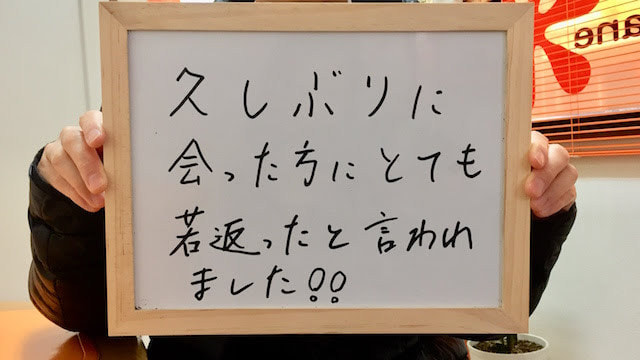 久しぶりに
会った方にとても
若返ったと言われ
ました!!
ane